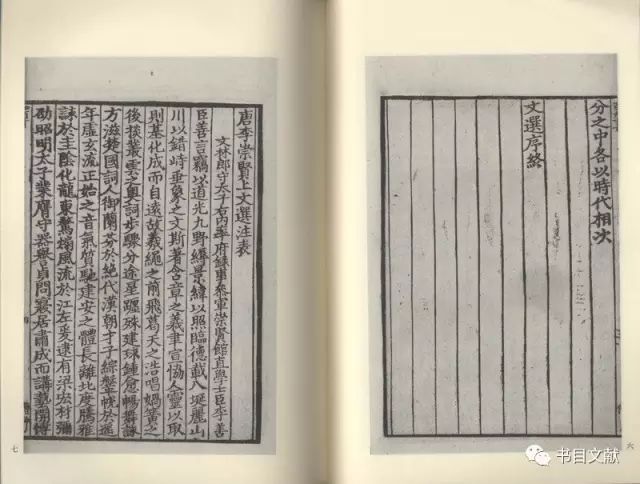 分之中各以時代相次
文選序終
六
唐李崇賢上文選注表
文林郎守太子右内率府録事參軍崇賢館直學士臣李善
臣善言竊以道光九野縟景緯以照臨德載八埏麗山
川以錯峙垂象之文斯著含章之義聿宣協人靈以取
則基化成而自遠故羲繩之前飛葛天之浩唱媧簧之
後掞叢雲之奥詞步驟分途星躔殊建球鍾愈暢舞詠
方滋楚國詞人御蘭芬於絶代漢朝才子綜鞶帨於遥
年虚玄流正始之音氣質馳建安之體長離北度騰雅
詠於圭陰化龍東騖煽風流於江左爰逮有梁宏材彌
劭昭明太子業膺守器譽貞問寢居肅成而講藝開博
七
书目文献